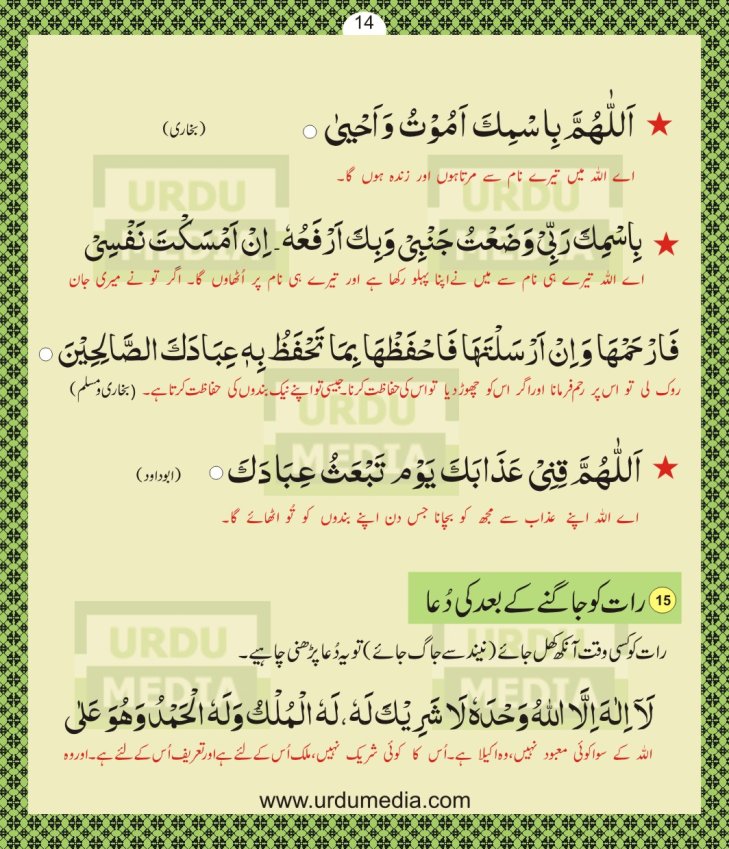 14
اَللّٰهُمَّ بِاسْمِكَ اَمُوْتُ وَاَحْيٰى ○ (بخاری)
اے اللہ میں تیرے نام سے مرتاہوں اور زندہ ہوں گا۔
بِاسْمِكَ رَبِّىْ وَضَعْتُ جَنْبِىْ وَبِكَ اَرْفَعُهٗ۔ اِنْ اَمْسَكْتَ نَفْسِىْ
اے اللہ تیرے ہی نام سے میں نےاپنا پہلو رکھا ہے اور تیرے ہی نام پر اُٹھاوں گا۔ اگر تو نے میری جان
فَارْحَمْهَا وَاِنْ اَرْسَلْتَهَا فَاحْفَظْهَا بِمَا تَحْفَظُ بِهٖ عِبَادَكَ الصَّالِحِيْنَ ○
روک لی تو اس پر رحم فرمانا اوراگر اس کو چھوڑ دیا تواس کی حفاظت کرنا۔جیسی تواپنے نیک بندوں کی حفاظت کرتا ہے۔ (بخاری ومسلم)
اَللّٰهُمَّ قِنِىْ عَذَابَكَ يَوْمَ تَبْعَثُ عِبَادَكَ ○ (ابوداود)
اے اللہ اپنے عذاب سے مجھ کو بچانا جس دن اپنے بندوں کو تُو اٹھائے گا۔
15 رات کو جاگنے کے بعد کی دُعا
رات کو کسی وقت آنکھ کھل جائے (نیند سے جاگ جائے) تو یہ دُعا پڑھنی چاہیے۔
لَآ اِلٰهَ اِلَّا اللهُ وَحْدَهٗ لَا شَرِيْكَ لَهٗ، لَهُ الْمُلْكُ وَلَهُ الْحَمْدُ وَهُوَ عَلٰى
اللہ کے سوا کوئی معبود نہیں، وہ اکیلا ہے۔اُس کا کوئی شریک نہیں، ملک اُس کے لئے ہے اور تعریف اُس کے لئے ہے۔ اور وہ
www.urdumedia.com
URDU MEDIA
URDU MEDIA
URDU MEDIA
URDU MEDIA
URDU MEDIA